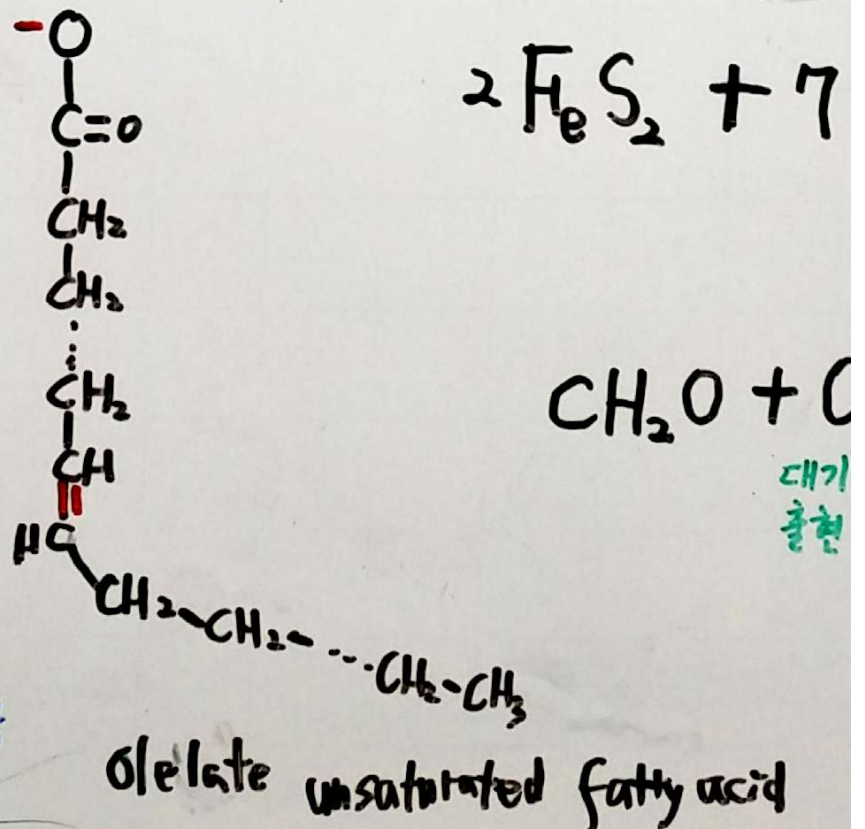 -O
C=O
CH₂
CH₂
CH₂
CH
HC
CH₂-CH₂-...CH₂-CH₃
Olelate unsaturated fatty acid
2FeS₂ + 7
CH₂O + O
대기
출현